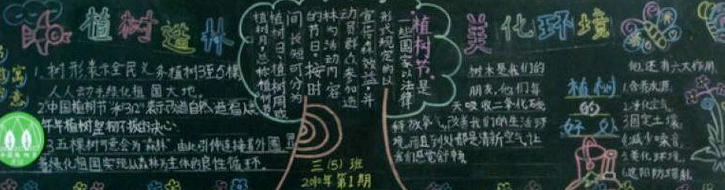 植树造林
1、树形表示全民义务植树3至5棵
人人动手绿化祖国大地。
2中国植树节"3.12"表示改造自然造福人
年年植树坚韧不拔决心
3五棵树可会意为"森林"由此引伸连接着外圈
绿化祖国实现以森林为主体的良性循环
植树节是
一些国家以法律
形式规定的以
宣传森林效益,并
动员群众参加造
林为活动内容
的节日。按时
间长短可分为
植树日、植树周或
植树月。总称植树节
三(5)班
第1期
美化环境
树木是我们的
朋友,他们每
天吸收二氧化碳
释放氧气,改善我们的生活环
境,而且到处都是清新空气,让
我们感觉舒畅
植树
的
好处
他还有六大作用
2.净化空气
3固定土壤
4.减少噪音
5美化环境
6遮阳防辐射